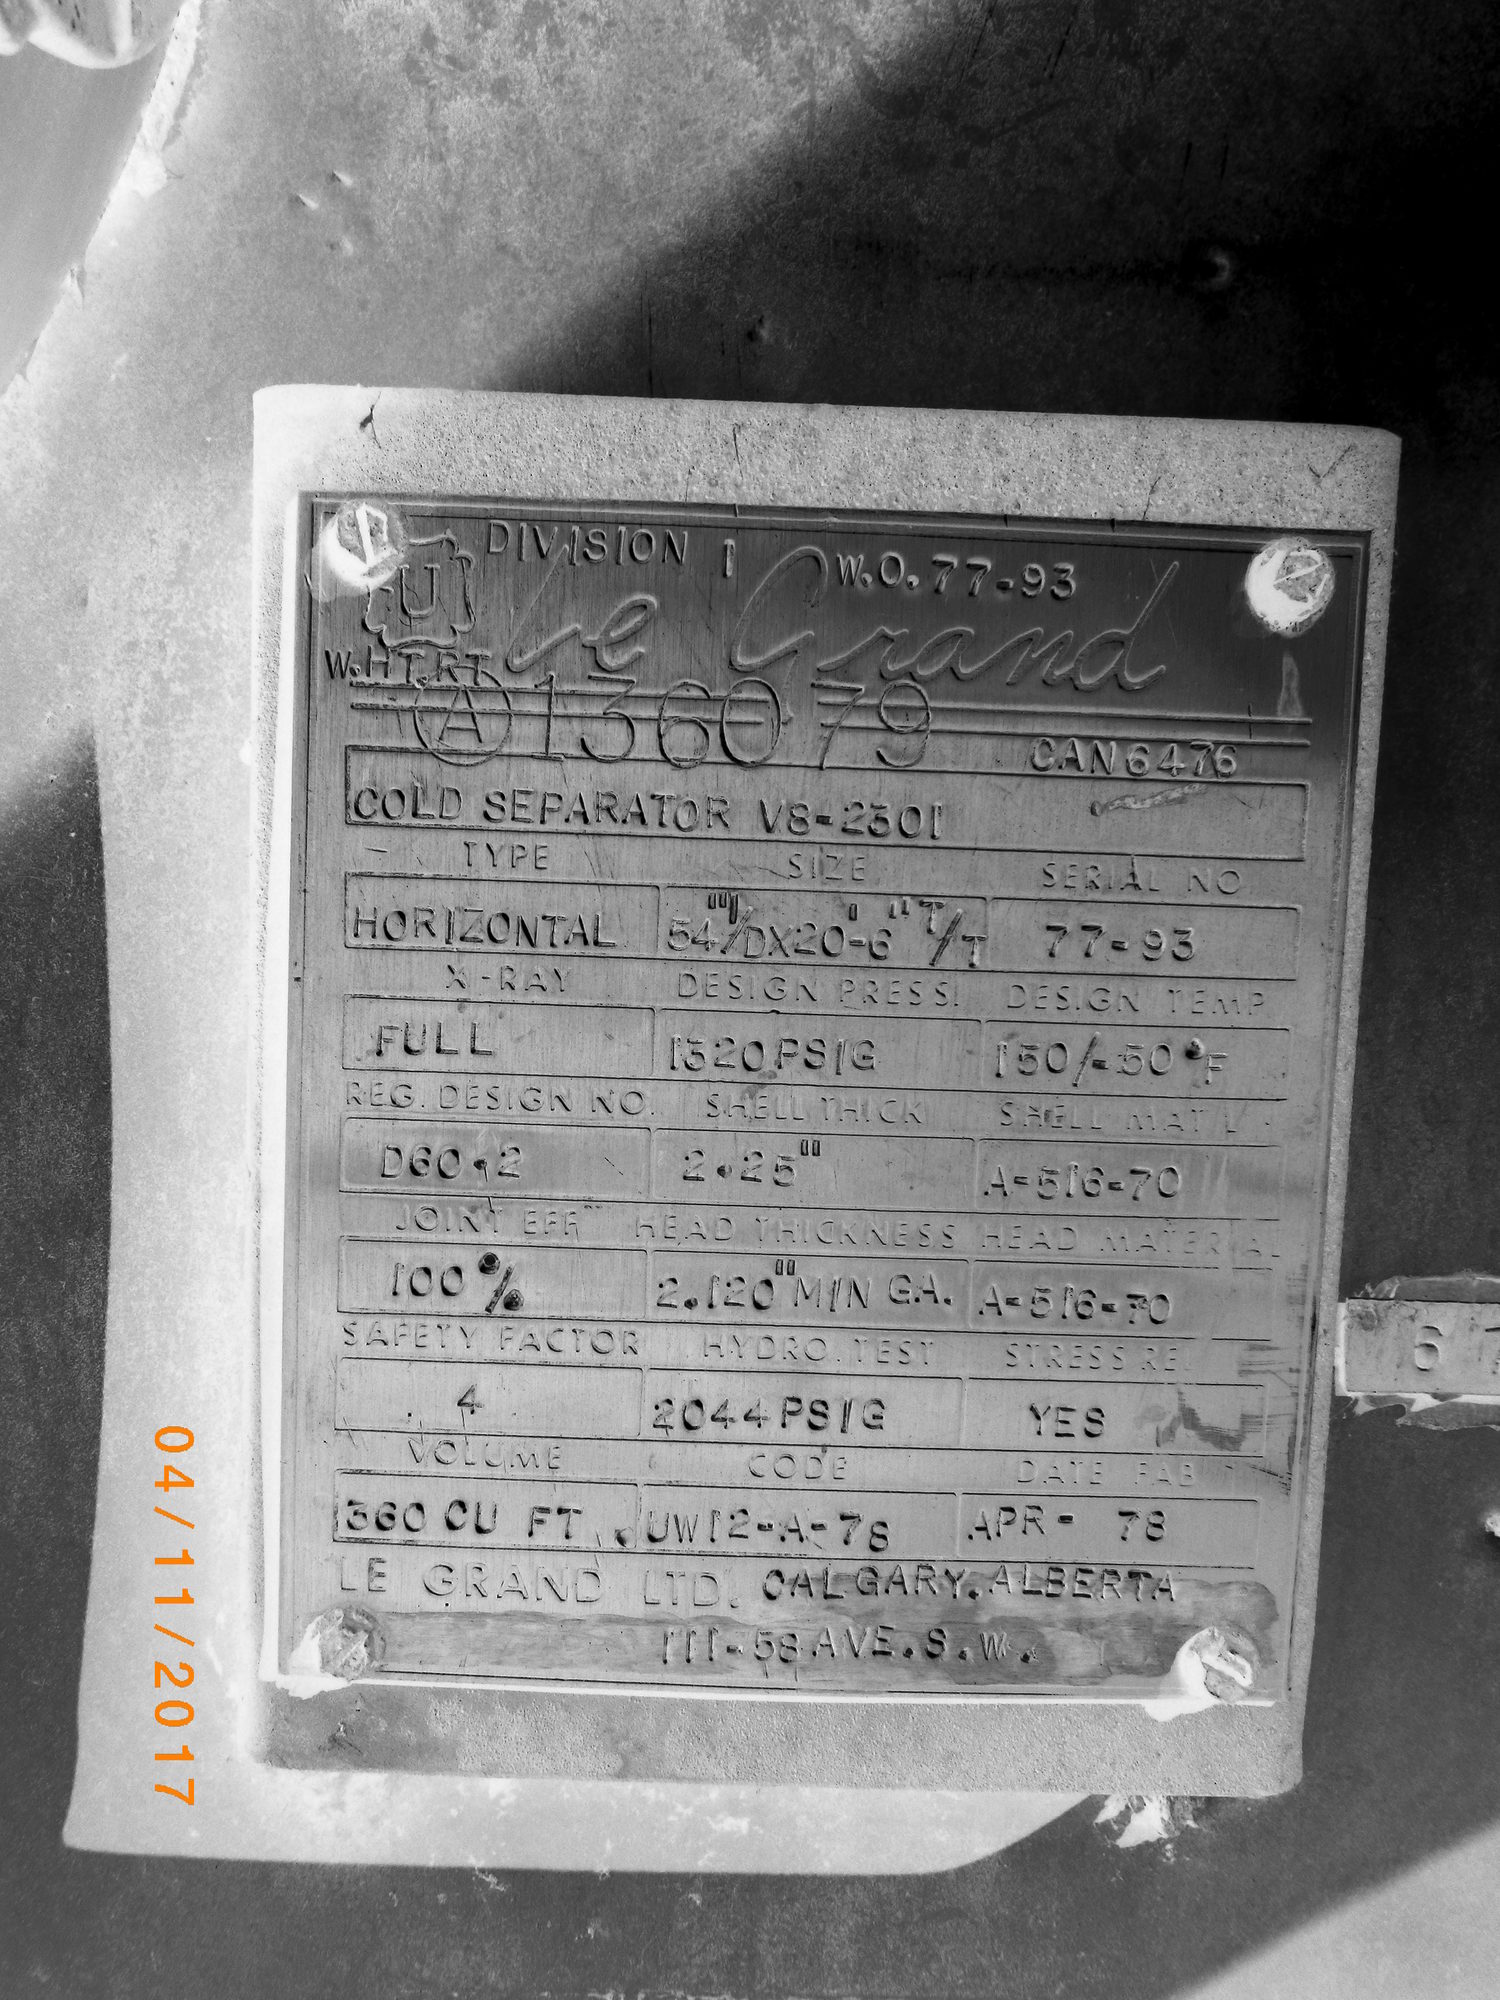 DIVISION 1 W.O. 77-93
U Le Grand
W.HT.RT
A 136079
CAN 6476
COLD SEPARATOR VS-2301
TYPE SIZE SERIAL NO
HORIZONTAL 54"I/DX20'-6" T/T 77-93
X-RAY DESIGN PRESS. DESIGN TEMP
FULL 1320 PSIG 150/-50°F
REG. DESIGN NO. SHELL THICK SHELL MAT'L
D60.2 2.25" A-516-70
JOINT EFF HEAD THICKNESS HEAD MATERIAL
100% 2.120" MIN GA. A-516-70
SAFETY FACTOR HYDRO. TEST STRESS RE.
4 2044 PSIG YES
VOLUME CODE DATE FAB
360 CU FT. UW12-A-78 APR- 78
LE GRAND LTD. CALGARY. ALBERTA
111-58 AVE. S. W.
04/11/2017